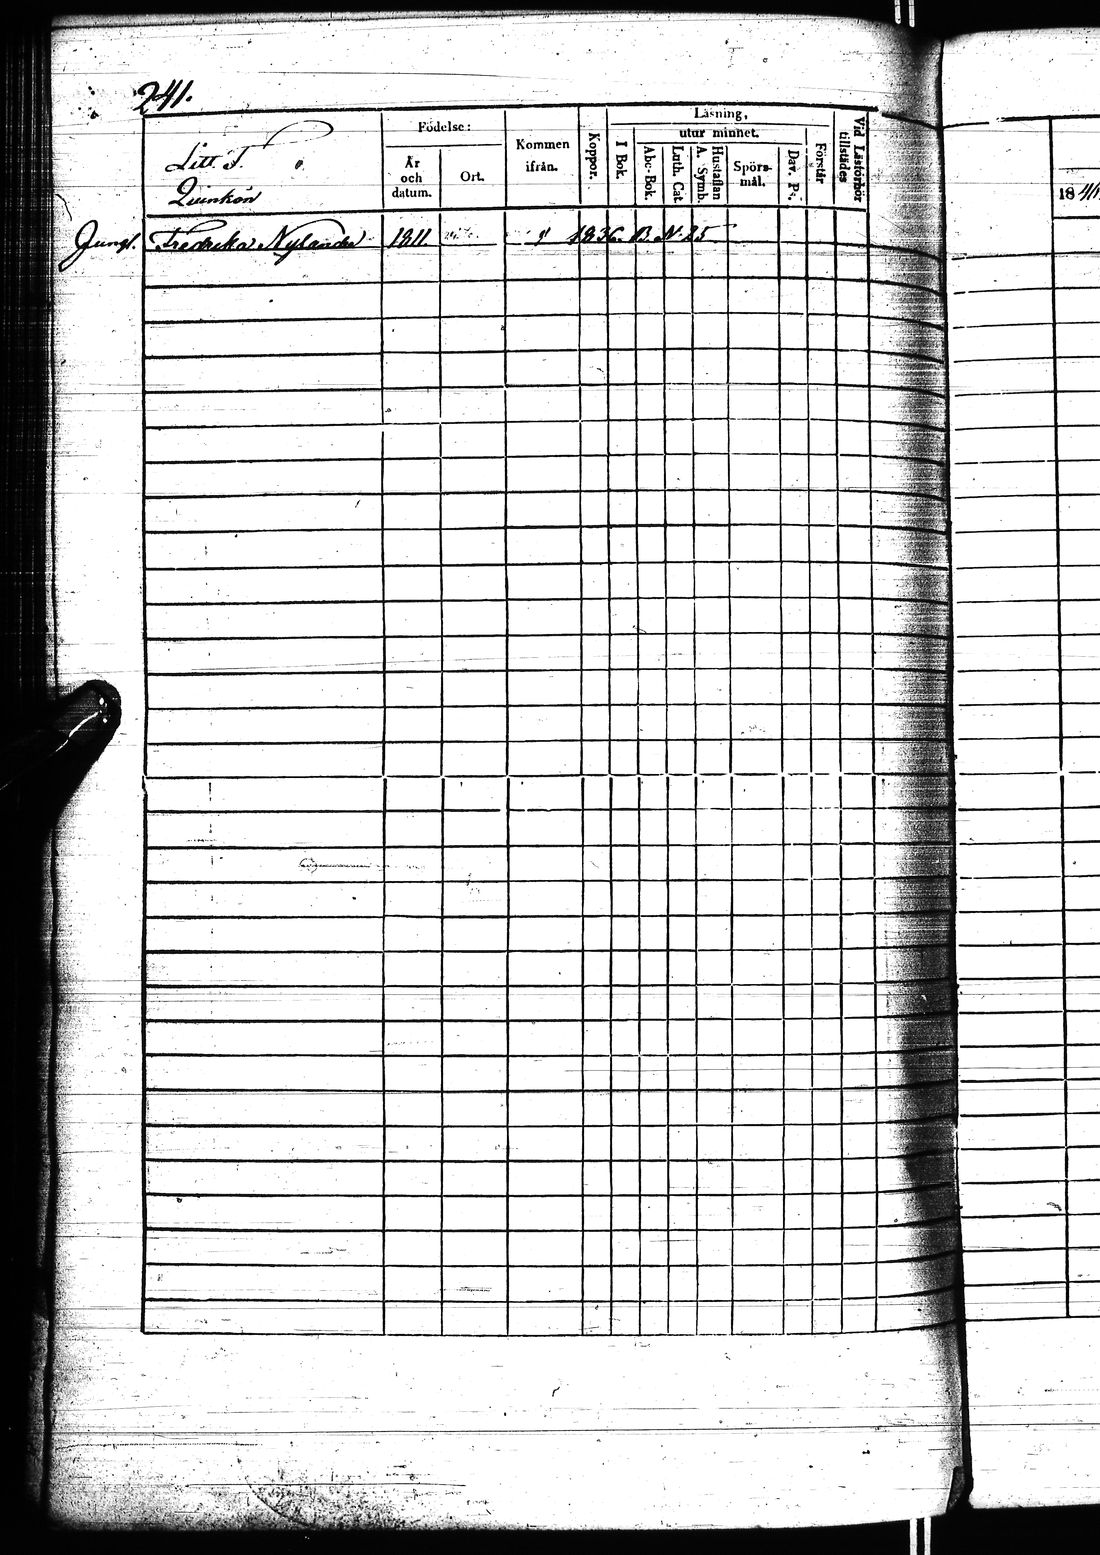 241.
Litt. T.
Quinkön
Födelse:
År och datum.
Ort.
Kommen ifrån.
Koppor.
Läsning,
I Bok.
utur minnet.
Abc-Bok.
Luth. Cat
Hustaflan A. Symb.
Spörsmål.
Dav. Ps.
Förstår
Vid Läsförhör tillstädes
Jungf. Fredrika Nylander 1811. 1836. B. N. 25
18 41